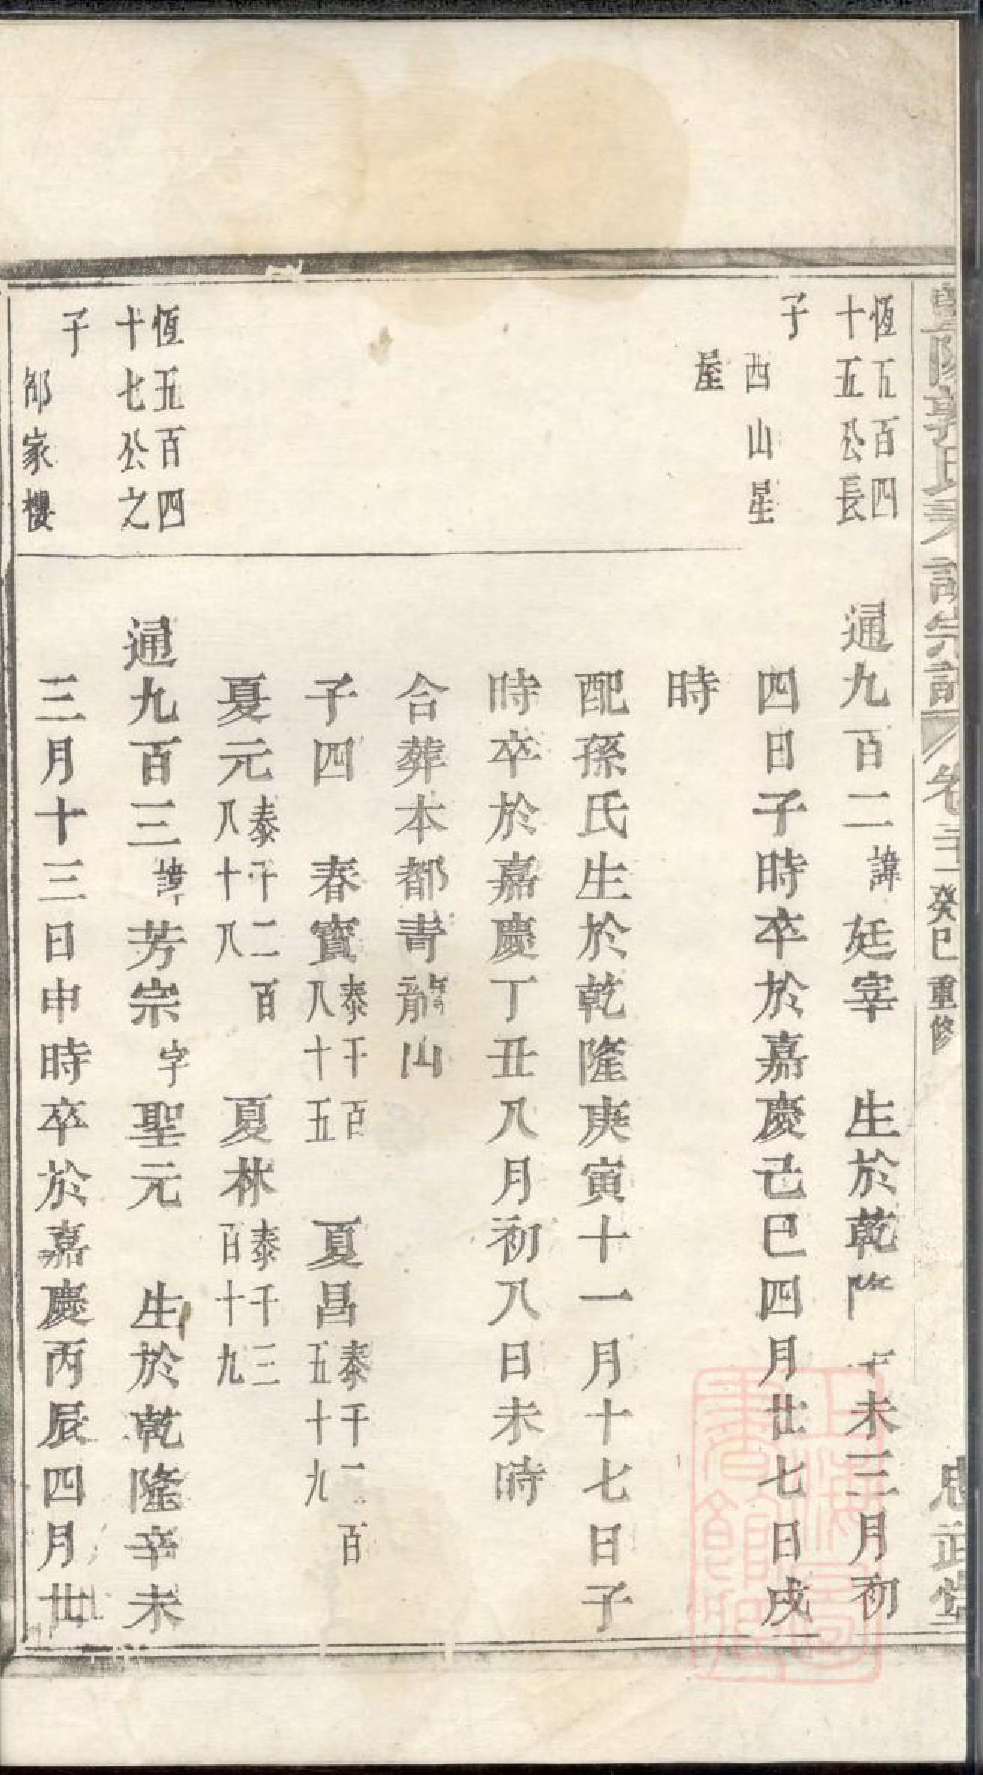 暨陽郭氏宗譜 卷 癸巳重修 忠武堂
恆五百四
十五公長
子
西山星
屋
通九百二諱廷宰 生於乾隆 未三月初
四日子時卒於嘉慶己巳四月廿七日戌
時
配孫氏生於乾隆庚寅十一月十七日子
時卒於嘉慶丁丑八月初八日未時
合葬本都青龍山
子四 春寶泰千百八十五 夏昌泰千一百五十九
夏元泰千二百八十八 夏林泰千三百十九
恆五百四
十七公之
子
邰家樓
通九百三諱芳宗字聖元 生於乾隆辛未
三月十三日申時卒於嘉慶丙辰四月廿